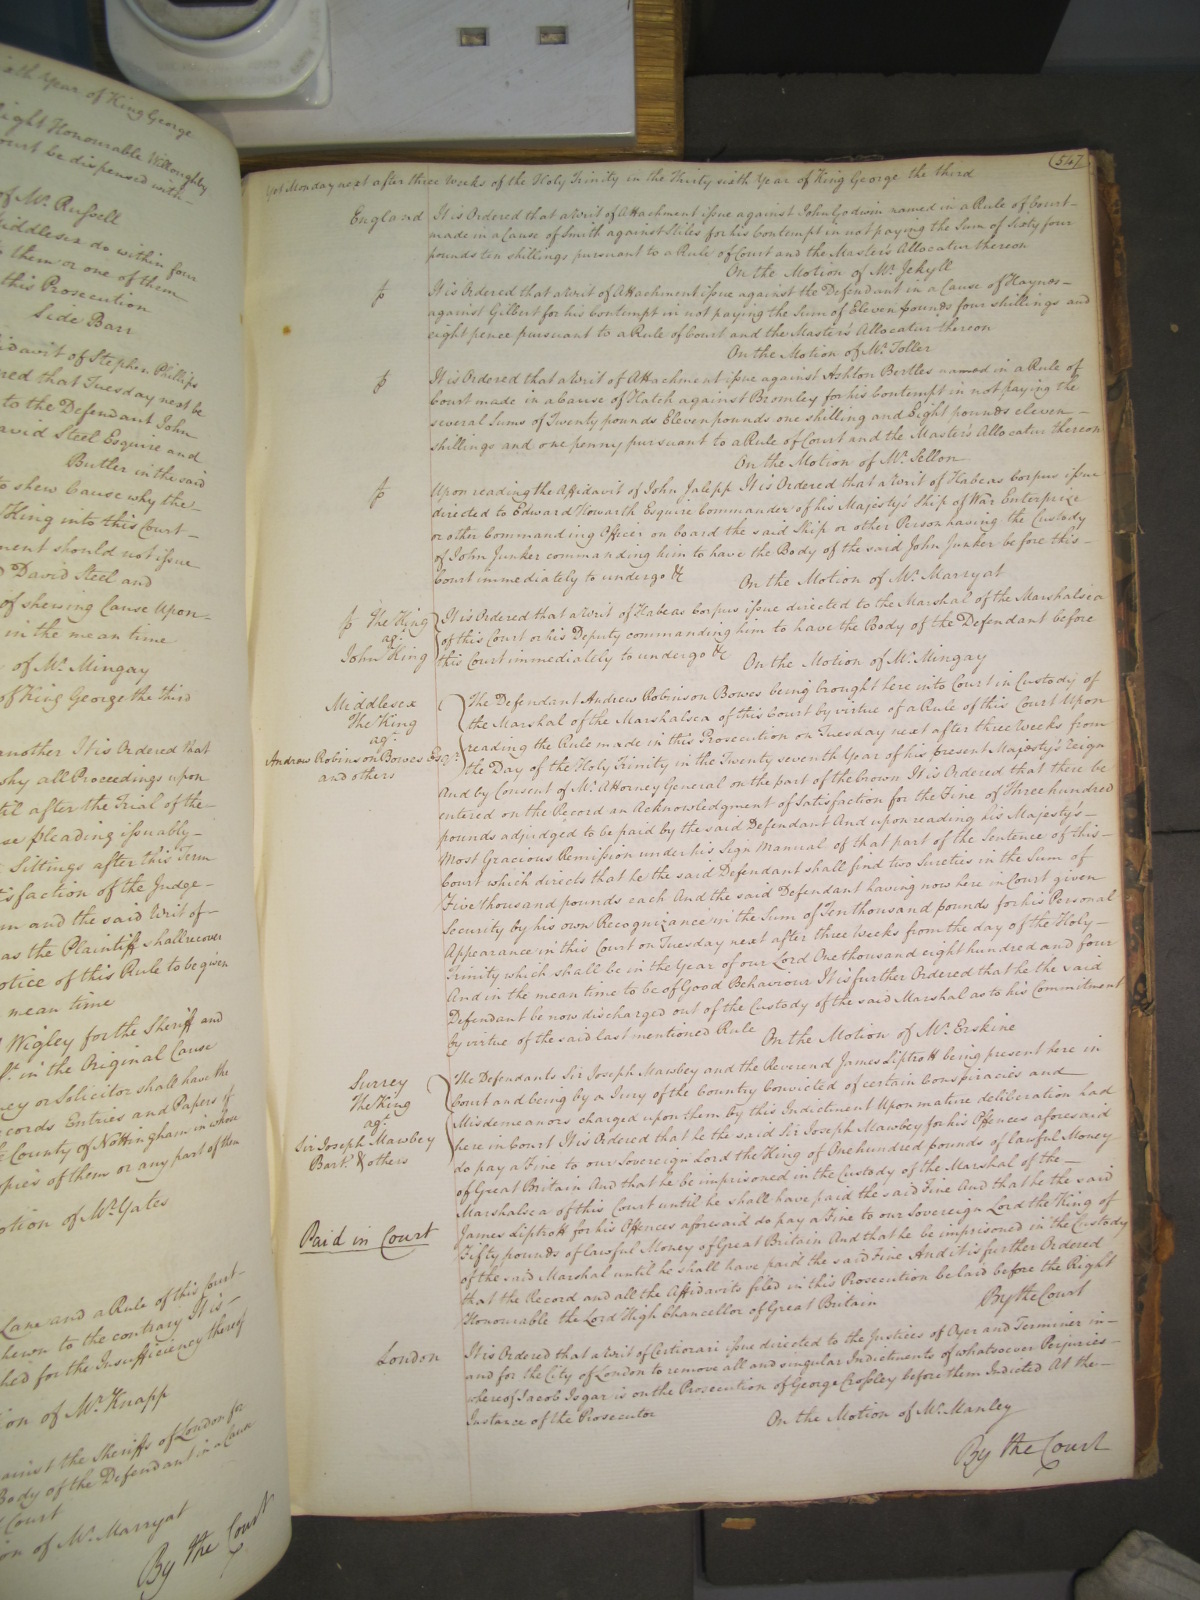 ixth Year of King George
Right Honourable Willoughby
Court be dispensed with
of Mr. Russell
Middlesex do within four
them or one of them
this Prosecution
Side Barr
Affidavit of Stephen Phillips
red that Tuesday next be
to the Defendant John
David Steel Esquire and
Butler in the said
to shew Cause why the
King into this Court
ment should not issue
David Steel and
of shewing Cause Upon
in the mean time
of Mr. Mingay
of King George the third
another It is Ordered that
shy all Proceedings upon
til after the Trial of the
se pleading issuably
Sittings after this Term
tisfaction of the Judge
m and the said Writ of
as the Plaintiff shall recover
otice of this Rule to be given
mean time
Wigley for the Sheriff and
ft. in the Original Cause
ney or Solicitor shall have the
cords Entries and Papers if
County of Nottingham in whose
opies of them or any part of them
otion of Mr. Gates
Lane and a Rule of this Court
hewn to the contrary It is
hed for the Insufficiency thereof
ion of Mr. Knapp
gainst the Sheriffs of London for
Body of the Defendant in a Cause
Court
ion of Mr. Marryat
By the Court
547
Yet Monday next after three Weeks of the Holy Trinity in the Thirty sixth Year of King George the third
England It is Ordered that a Writ of Attachment issue against John Godwin named in a Rule of Court
made in a Cause of Smith against Stiles for his Contempt in not paying the Sum of Sixty four
pounds ten shillings pursuant to a Rule of Court and the Master's Allocatur thereon
On the Motion of Mr. Jekyll
It is Ordered that a Writ of Attachment issue against the Defendant in a Cause of Haynes
against Gilbert for his Contempt in not paying the Sum of Eleven pounds four shillings and
eight pence pursuant to a Rule of Court and the Master's Allocatur thereon
On the Motion of Mr. Toller
It is Ordered that a Writ of Attachment issue against Ashton Bertles named in a Rule of
Court made in a Cause of Hatch against Bromley for his Contempt in not paying the
several Sums of Twenty pounds Eleven pounds one shilling and Eight pounds eleven
shillings and one penny pursuant to a Rule of Court and the Master's Allocatur thereon
On the Motion of Mr. Sellon
Upon reading the Affidavit of John Jalepp It is Ordered that a Writ of Habeas Corpus issue
directed to Edward Howarth Esquire Commander of his Majesty's Ship of War Enterprize
or other Commanding Officer on board the said Ship or other Person having the Custody
of John Junker commanding him to have the Body of the said John Junker before this
Court immediately to undergo &c
On the Motion of Mr. Marryat
The King
agt.
John King
It is Ordered that a Writ of Habeas Corpus issue directed to the Marshal of the Marshalsea
of this Court or his Deputy commanding him to have the Body of the Defendant before
this Court immediately to undergo &c
On the Motion of Mr. Mingay
Middlesex
The King
agt.
Andrew Robinson Bowes Esqr.
and others
The Defendant Andrew Robinson Bowes being brought here into Court in Custody of
the Marshal of the Marshalsea of this Court by virtue of a Rule of this Court Upon
reading the Rule made in this Prosecution on Tuesday next after three Weeks from
the Day of the Holy Trinity in the Twenty seventh Year of his present Majesty's reign
And by Consent of Mr. Attorney General on the part of the Crown It is Ordered that there be
entered on the Record an Acknowledgment of Satisfaction for the Fine of Three hundred
pounds adjudged to be paid by the said Defendant And upon reading his Majesty's
Most Gracious Remission under his Sign Manual of that part of the Sentence of this
Court which directs that he the said Defendant shall find two Sureties in the Sum of
Five thousand pounds each And the said Defendant having now here in Court given
Security by his own Recognizance in the Sum of Ten thousand pounds for his Personal
Appearance in this Court on Tuesday next after three Weeks from the day of the Holy
Trinity which shall be in the Year of our Lord One thousand eight hundred and four
And in the mean time to be of Good Behaviour It is further Ordered that he the said
Defendant be now discharged out of the Custody of the said Marshal as to his Commitment
by virtue of the said last mentioned Rule
On the Motion of Mr. Erskine
Surrey
The King
agt.
Sir Joseph Mawbey
Bart. & others
The Defendants Sir Joseph Mawbey and the Reverend James Liptrott being present here in
Court and being by a Jury of the Country Convicted of certain Conspiracies and
Misdemeanors charged upon them by this Indictment Upon mature deliberation had
here in Court It is Ordered that he the said Sir Joseph Mawbey for his Offences aforesaid
do pay a Fine to our Sovereign Lord the King of One hundred pounds of lawful Money
of Great Britain And that he be imprisoned in the Custody of the Marshal of the
Marshalsea of this Court until he shall have paid the said Fine And that he the said
James Liptrott for his Offences aforesaid do pay a Fine to our Sovereign Lord the King of
Fifty pounds of lawful Money of Great Britain And that he be imprisoned in the Custody
of the said Marshal until he shall have paid the said Fine And it is further Ordered
that the Record and all the Affidavits filed in this Prosecution be laid before the Right
Honourable the Lord High Chancellor of Great Britain
By the Court
Paid in Court
London It is Ordered that a Writ of Certiorari issue directed to the Justices of Oyer and Terminer in
and for the City of London to remove all and singular Indictments of whatsoever Perjuries
whereof Jacob Isgar is on the Prosecution of George Crossley before them Indicted At the
Instance of the Prosecutor
On the Motion of Mr. Manley
By the Court